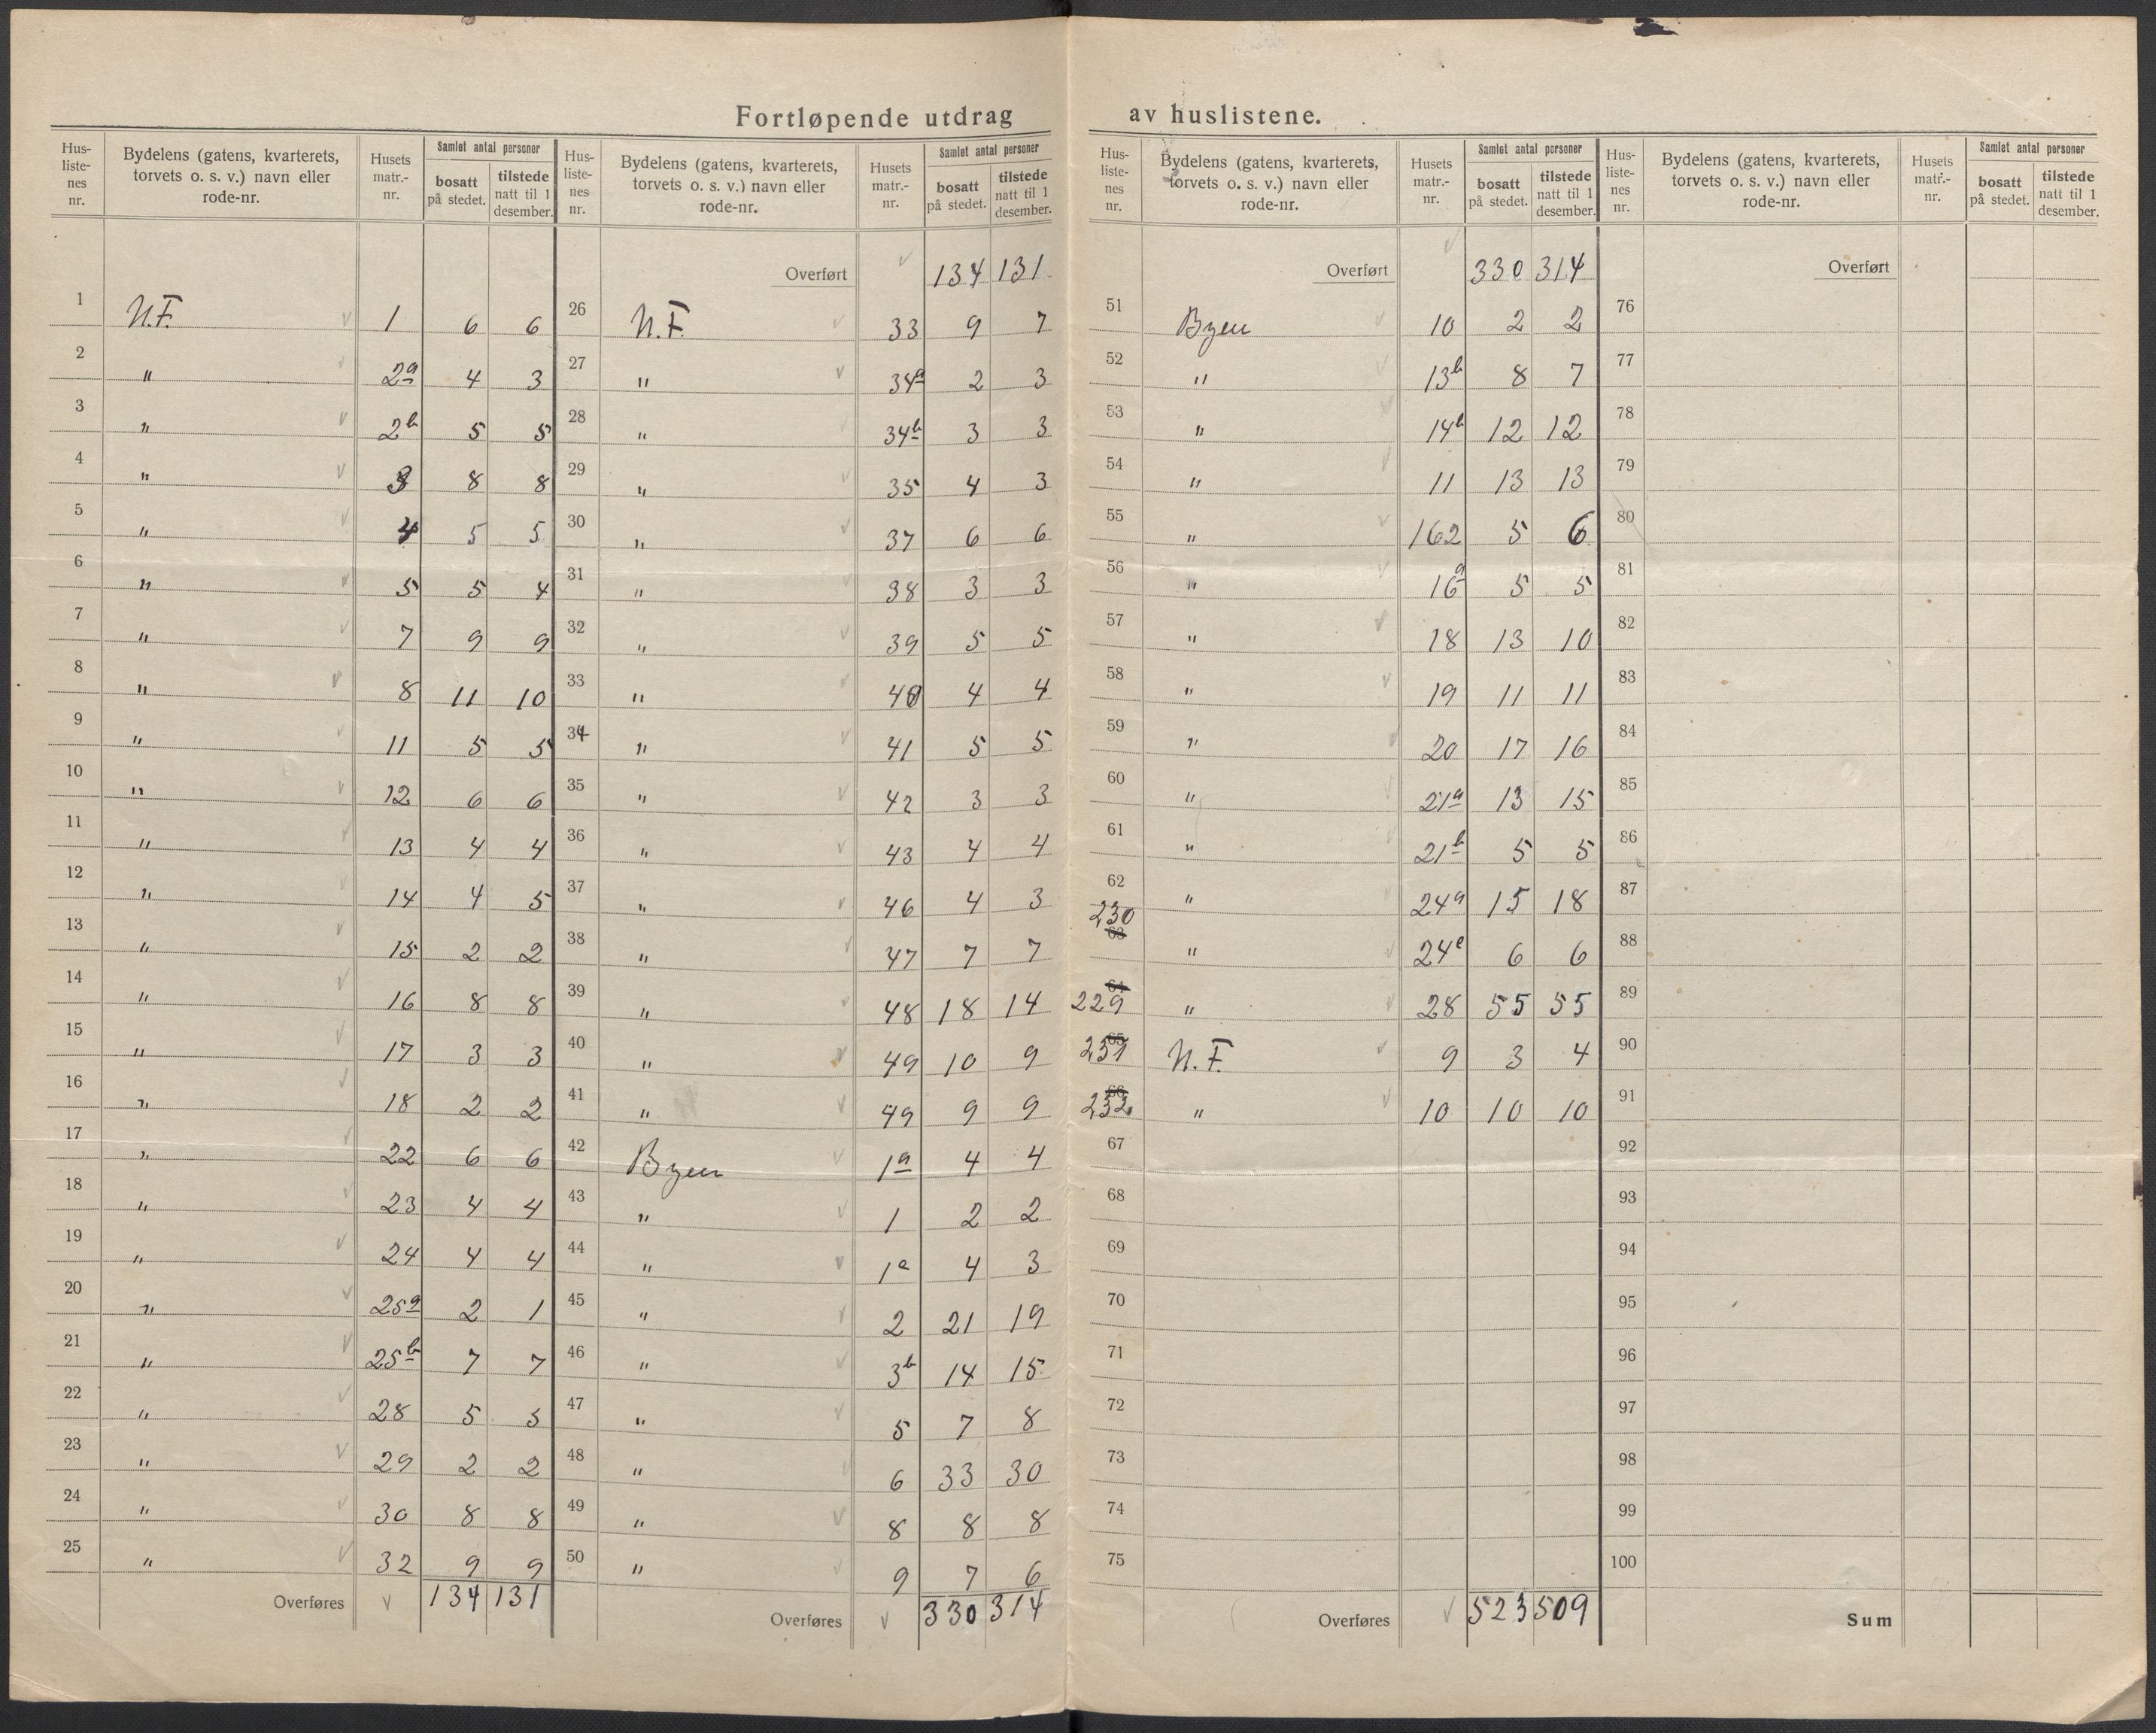 Fortløpende utdrag av huslistene.
Hus-listenes nr. Bydelens (gatens, kvarterets, torvets o. s. v.) navn eller rode-nr. Husets matr.-nr. Samlet antal personer bosatt på stedet. tilstede natt til 1 desember.
1 N.F. 1 6 6
2 " 2a 4 3
3 " 2b 5 5
4 " 3 8 8
5 " 4 5 5
6 " 5 5 4
7 " 7 9 9
8 " 8 11 10
9 " 11 5 5
10 " 12 6 6
11 " 13 4 4
12 " 14 4 5
13 " 15 2 2
14 " 16 8 8
15 " 17 3 3
16 " 18 2 2
17 " 22 6 6
18 " 23 4 4
19 " 24 4 4
20 " 25a 2 1
21 " 25b 7 7
22 " 28 5 5
23 " 29 2 2
24 " 30 8 8
25 " 32 9 9
Overføres 134 131
Hus-listenes nr. Bydelens (gatens, kvarterets, torvets o. s. v.) navn eller rode-nr. Husets matr.-nr. Samlet antal personer bosatt på stedet. tilstede natt til 1 desember.
Overført 134 131
26 N.F. 33 9 7
27 " 34a 2 3
28 " 34b 3 3
29 " 35 4 3
30 " 37 6 6
31 " 38 3 3
32 " 39 5 5
33 " 40 4 4
34 " 41 5 5
35 " 42 3 3
36 " 43 4 4
37 " 46 4 3
38 " 47 7 7
39 " 48 18 14
40 " 49 10 9
41 " 49 9 9
42 Byen 1a 4 4
43 " 1 2 2
44 " 1e 4 3
45 " 2 21 19
46 " 3b 14 15
47 " 5 7 8
48 " 6 33 30
49 " 8 8 8
50 " 9 7 6
Overføres 330 314
Hus-listenes nr. Bydelens (gatens, kvarterets, torvets o. s. v.) navn eller rode-nr. Husets matr.-nr. Samlet antal personer bosatt på stedet. tilstede natt til 1 desember.
Overført 330 314
51 Byen 10 2 2
52 " 13b 8 7
53 " 14b 12 12
54 " 11 13 13
55 " 162 5 6
56 " 16a 5 5
57 " 18 13 10
58 " 19 11 11
59 " 20 17 16
60 " 21a 13 15
61 " 21b 5 5
62 " 24a 15 18
63 230 " 24e 6 6
64 229 " 28 55 55
65 231 N.F. 9 3 4
66 232 " 10 10 10
67
68
69
70
71
72
73
74
75
Overføres 523 509
Hus-listenes nr. Bydelens (gatens, kvarterets, torvets o. s. v.) navn eller rode-nr. Husets matr.-nr. Samlet antal personer bosatt på stedet. tilstede natt til 1 desember.
Overført
76
77
78
79
80
81
82
83
84
85
86
87
88
89
90
91
92
93
94
95
96
97
98
99
100
Sum